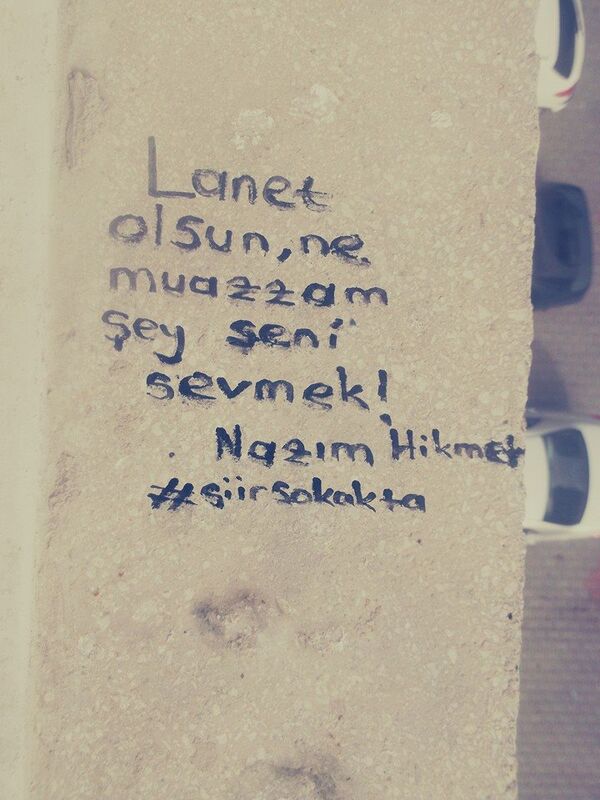 Lanet
olsun, ne
muazzam
şey seni
sevmek!
Nazım Hikmet
#şiirsokakta